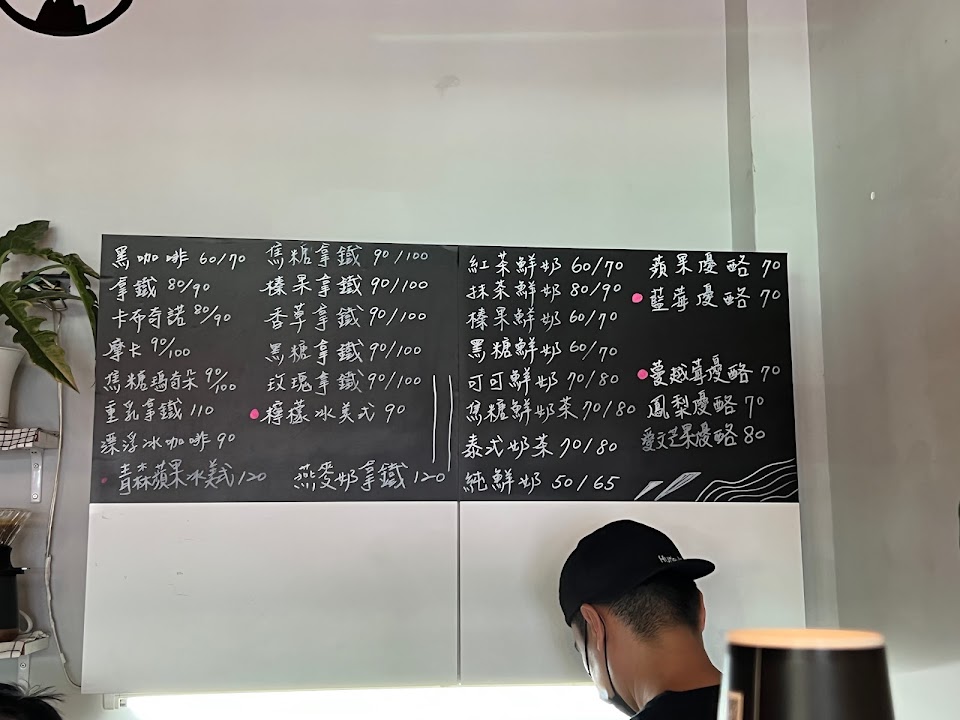 黑咖啡 60/70
拿鐵 80/90
卡布奇諾 80/90
摩卡 90/100
焦糖瑪奇朵 90/100
重乳拿鐵 110
漂浮冰咖啡 90
青森蘋果冰美式 120
焦糖拿鐵 90/100
榛果拿鐵 90/100
香草拿鐵 90/100
黑糖拿鐵 90/100
玫瑰拿鐵 90/100
檸檬冰美式 90
燕麥奶拿鐵 120
紅茶鮮奶 60/70
抹茶鮮奶 80/90
榛果鮮奶 60/70
黑糖鮮奶 60/70
可可鮮奶 70/80
焦糖鮮奶茶 70/80
泰式奶茶 70/80
純鮮奶 50/65
蘋果優酪 70
藍莓優酪 70
蔓越莓優酪 70
鳳梨優酪 70
愛文芒果優酪 80